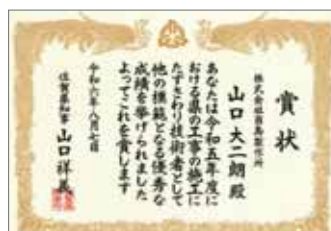 賞状
株式会社酉島製作所
山口大二朗殿
あなたは令和五年度に
おける県の工事の施工に
たずさわり技術者として
他の標範となる優秀な
成績を挙げられました
よってこれを賞します
令和六年八月七日
佐賀県知事山口祥義